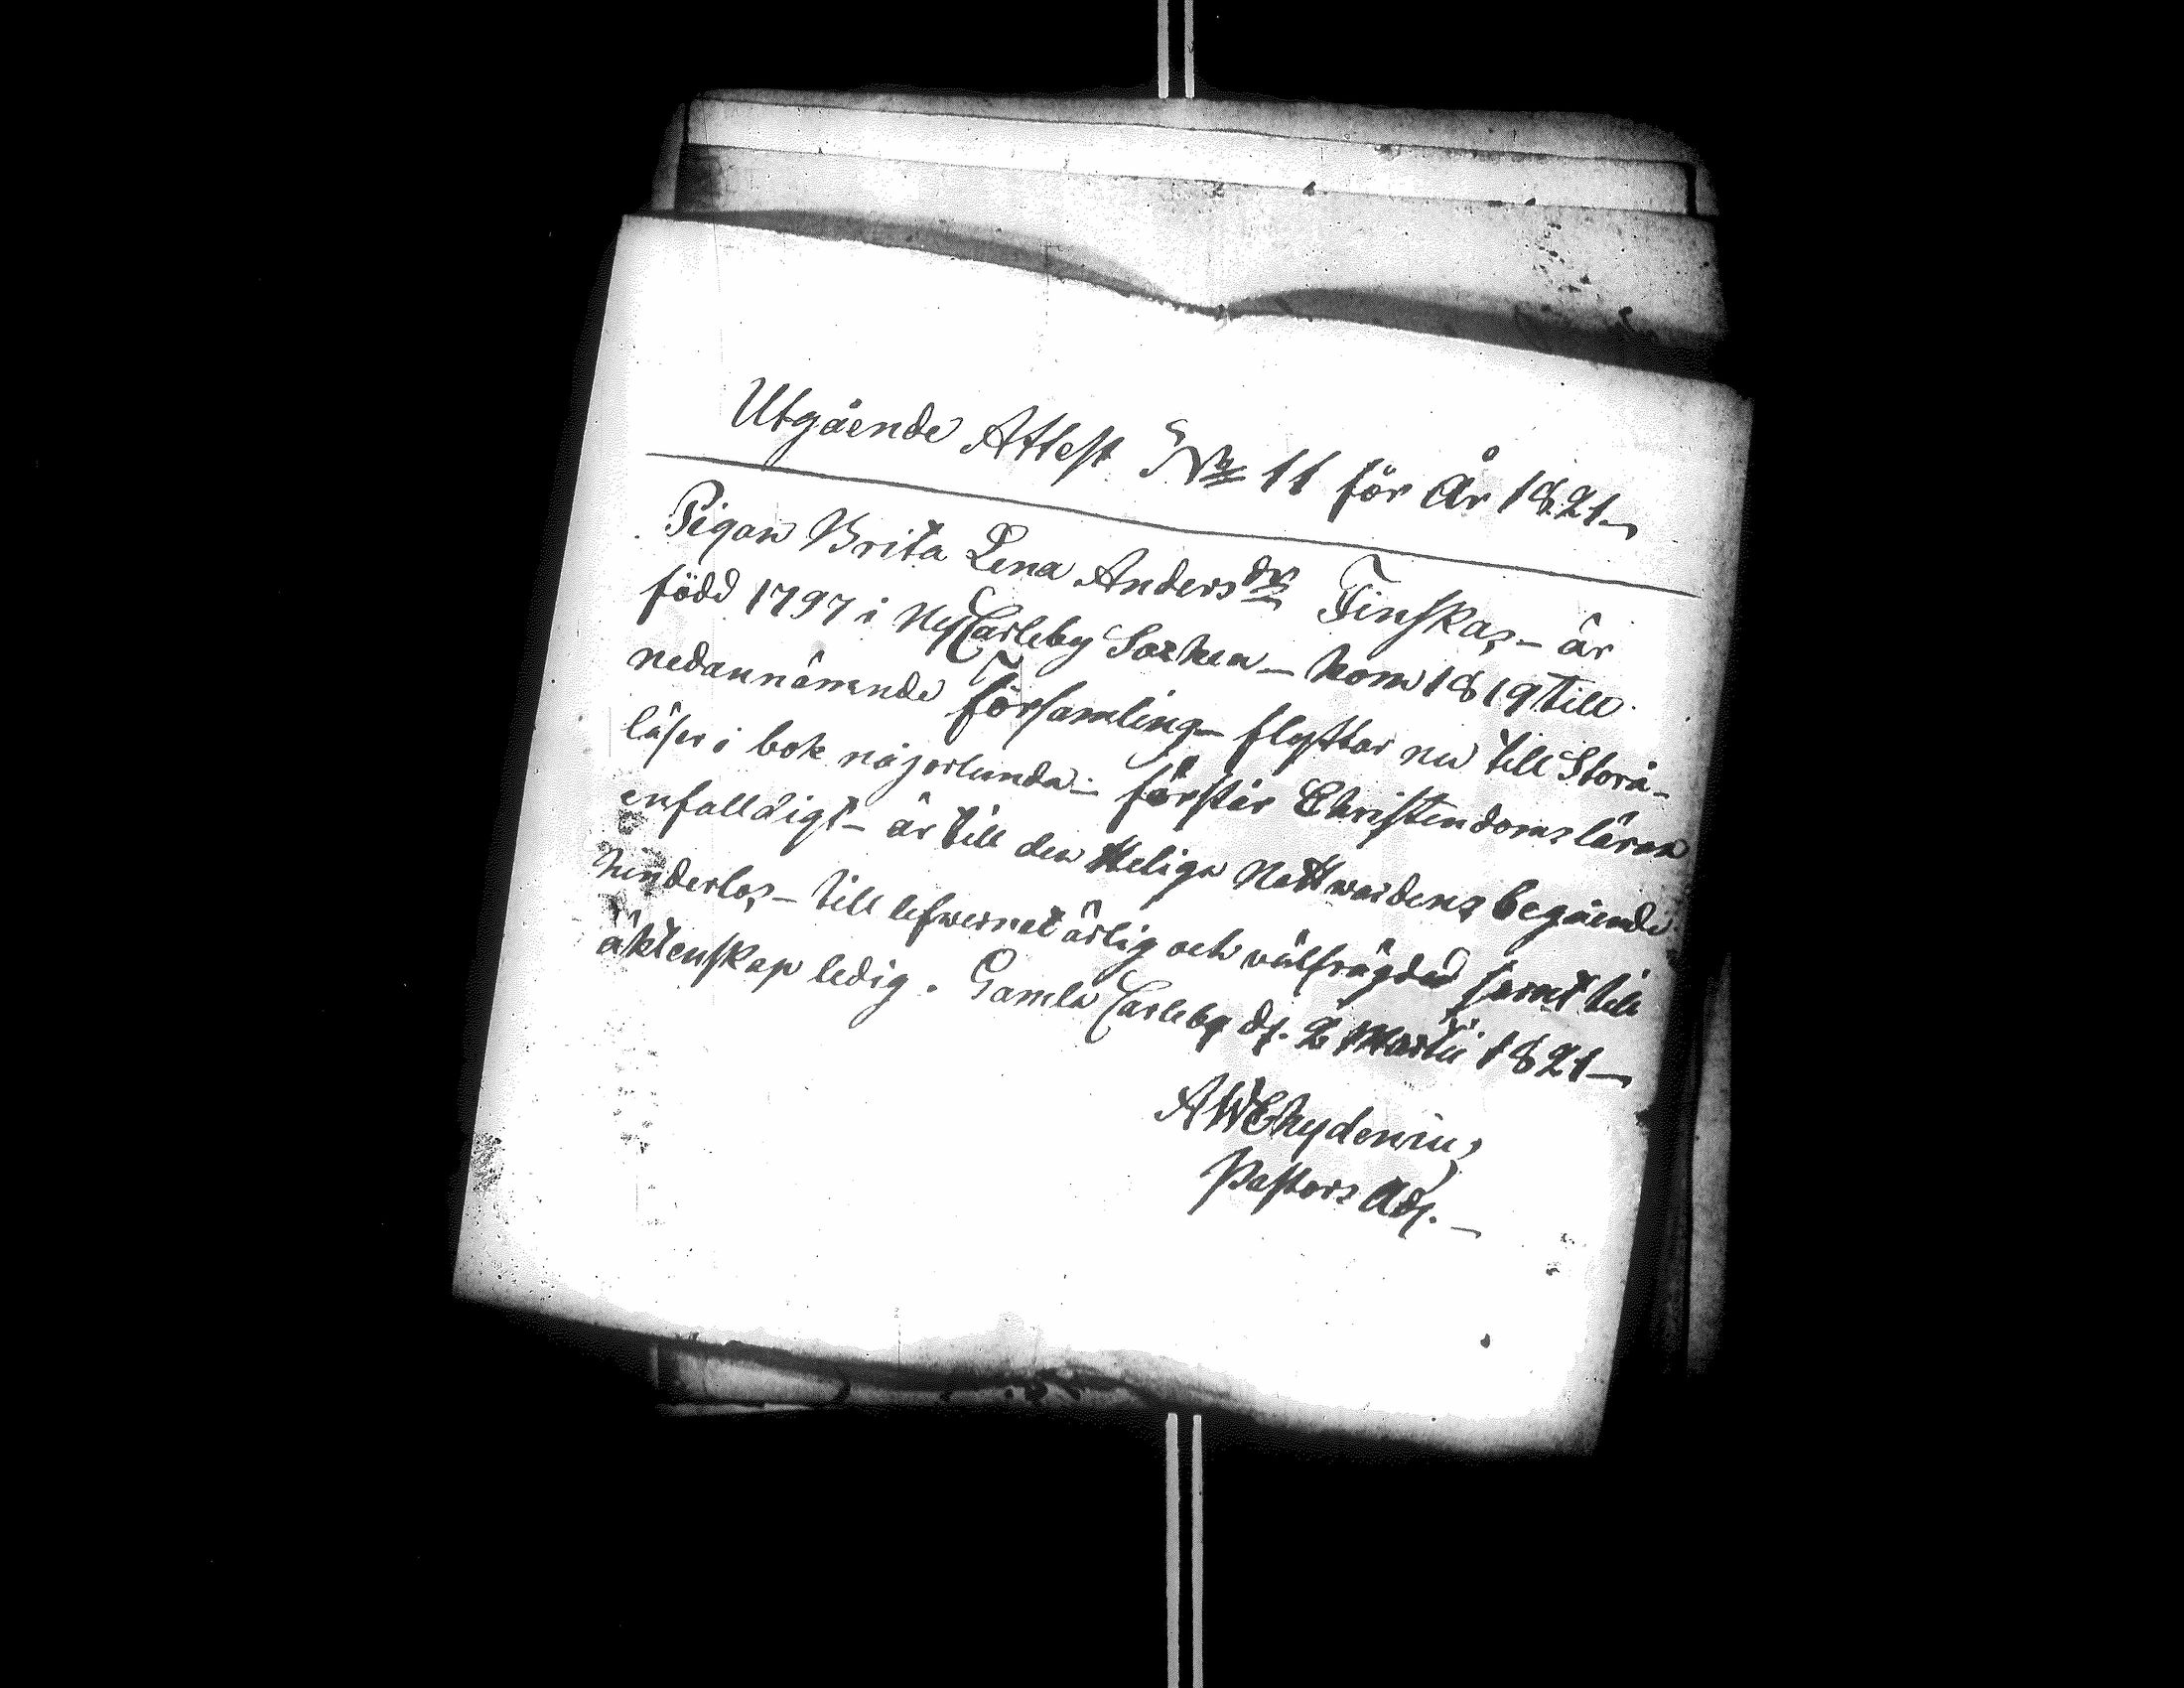 Utgående Attest No 11 för År 1821.
Pigan Brita Lena Andersdr Finskas - är
född 1797 i NyCarleby Sozken - kom 1819 till
nedannämnde Församling - flyttar nu till Storå -
läser i bok någorlunda - förstår Christendoms läran
enfalldigt - är till den Heliga Nattwardens begående
hinderlös - till lefwernet ärlig och välfrägdad samt till
äktenskap ledig. Gamla Carleby d. 2 Martii 1821 -
AWChydenius,
Pastors Adj. -